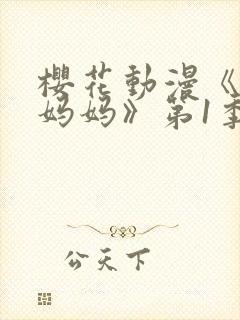 櫻花動漫《
妈妈》第1季
公天下